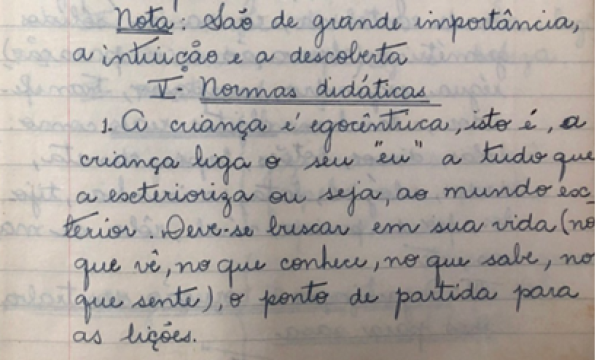 Nota: São de grande importância,
a intuição e a descoberta
V- Normas didáticas
1. A criança é egocêntrica, isto é, a
criança liga o seu "eu" a tudo que
a exterioriza ou seja, ao mundo ex_
terior. Deve-se buscar em sua vida (no
que vê, no que conhece, no que sabe, no
que sente), o ponto de partida para
as lições.